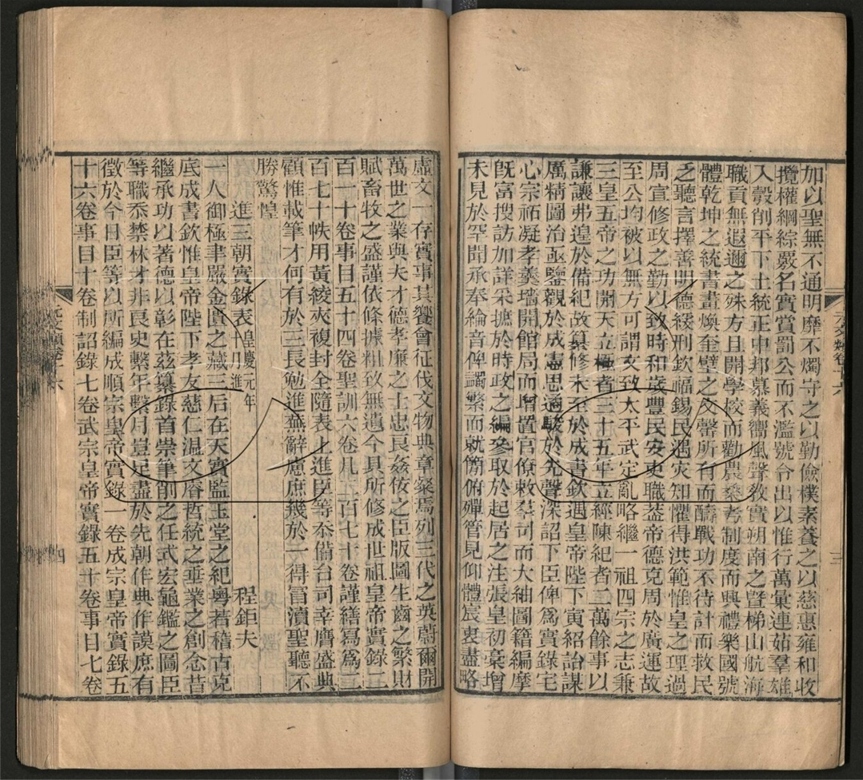 加以聖無不通明靡不燭守之以勤儉樸素養之以慈惠雍和收
攬權綱綜覈名實賞罰公而不濫號令出以惟行萬彙連茹羣雄
入彀削平下土統正中邦慕義嚮風聲教實朔南之暨梯山航海
職貢無遐邇之殊方且開學校而勸農桑考制度而興禮樂國號
體乾坤之統書畫煥奎璧之文聲所有而疇戰功不待計而救民
之聽言擇善明德緩刑欽福錫民遇災知懼得洪範惟皇之理過
周宣修政之勤以致時和歲豐民安吏職葢帝德克周於廣運故
至公均被以無方可謂文致太平武定亂略繼一祖四宗之志兼
三皇五帝之功開天立極者三十五年立經陳紀者二萬餘事以
謙讓弗遑於備紀故纂修未至於成書欽遇皇帝陛下寅紹詒謀
厲精圖治亟鑒觀於成憲思遹駿於先聲深詔下臣俾爲實錄宅
心宗祏凝孝羹墻開館局而增置官僚敕羣司而大紬圖籍編摩
既富搜訪加詳采摭於時政之編參取於起居之注張皇初稾增
未見於罕聞承奉綸音俾蠲繁而就簡俯殫管見仰體宸衷盡略
虛文一存實事其饗會征伐文物典章粲焉列三代之英蔚爾開
萬世之業與夫才德孝廉之士忠良姦佞之臣版圖生齒之繁財
賦畜牧之盛謹依條據粗致無遺今具所修成世祖皇帝實錄二
百一十卷事目五十四卷聖訓六卷凡二百七十卷謹繕寫爲二
百七十帙用黃綾夾複封全隨表上進臣等忝備台司幸膺盛典
顧惟載筆才何有於三長勉進蕪辭慮庶幾於一得冒瀆聖聽不
勝驚惶
進三朝實錄表 皇慶元年十月進
程鉅夫
一人御極聿嚴金匱之藏三后在天實監玉堂之紀粵若稽古克
底成書欽惟皇帝陛下孝友慈仁溫文濬哲統之垂業之創念昔
繼承功以著德以彰在茲纂錄首崇筆削之任式宏龜鑑之圖臣
等職忝禁林才非良史繫年繫月豈足盡於先朝作典作謨庶有
徵於今日臣等以所編成順宗皇帝實錄一卷成宗皇帝實錄五
十六卷事目十卷制詔錄七卷武宗皇帝實錄五十卷事目七卷